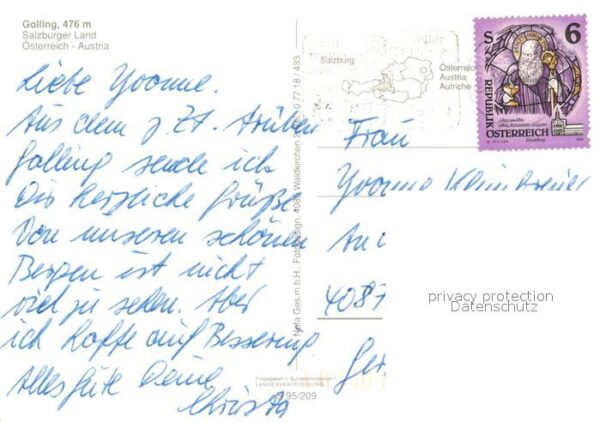 Golling, 476 m
Salzburger Land
Österreich - Austria
Liebe Yvonne.
Aus dem z. Zt. trüben
Golling sende ich
Dir herzliche Grüße
Von unseren schönen
Bergen ist nicht
viel zu sehen. Aber
ich hoffe auf Besserung
Alles Gute Deine
Christa
Salzburg
Österreich
Austria
Autriche
S 6
REPUBLIK
ÖSTERREICH
Frau
Yvonne
4087
Ger
privacy protection
Datenschutz
LANDESVERTEIDIGUNG
95/209